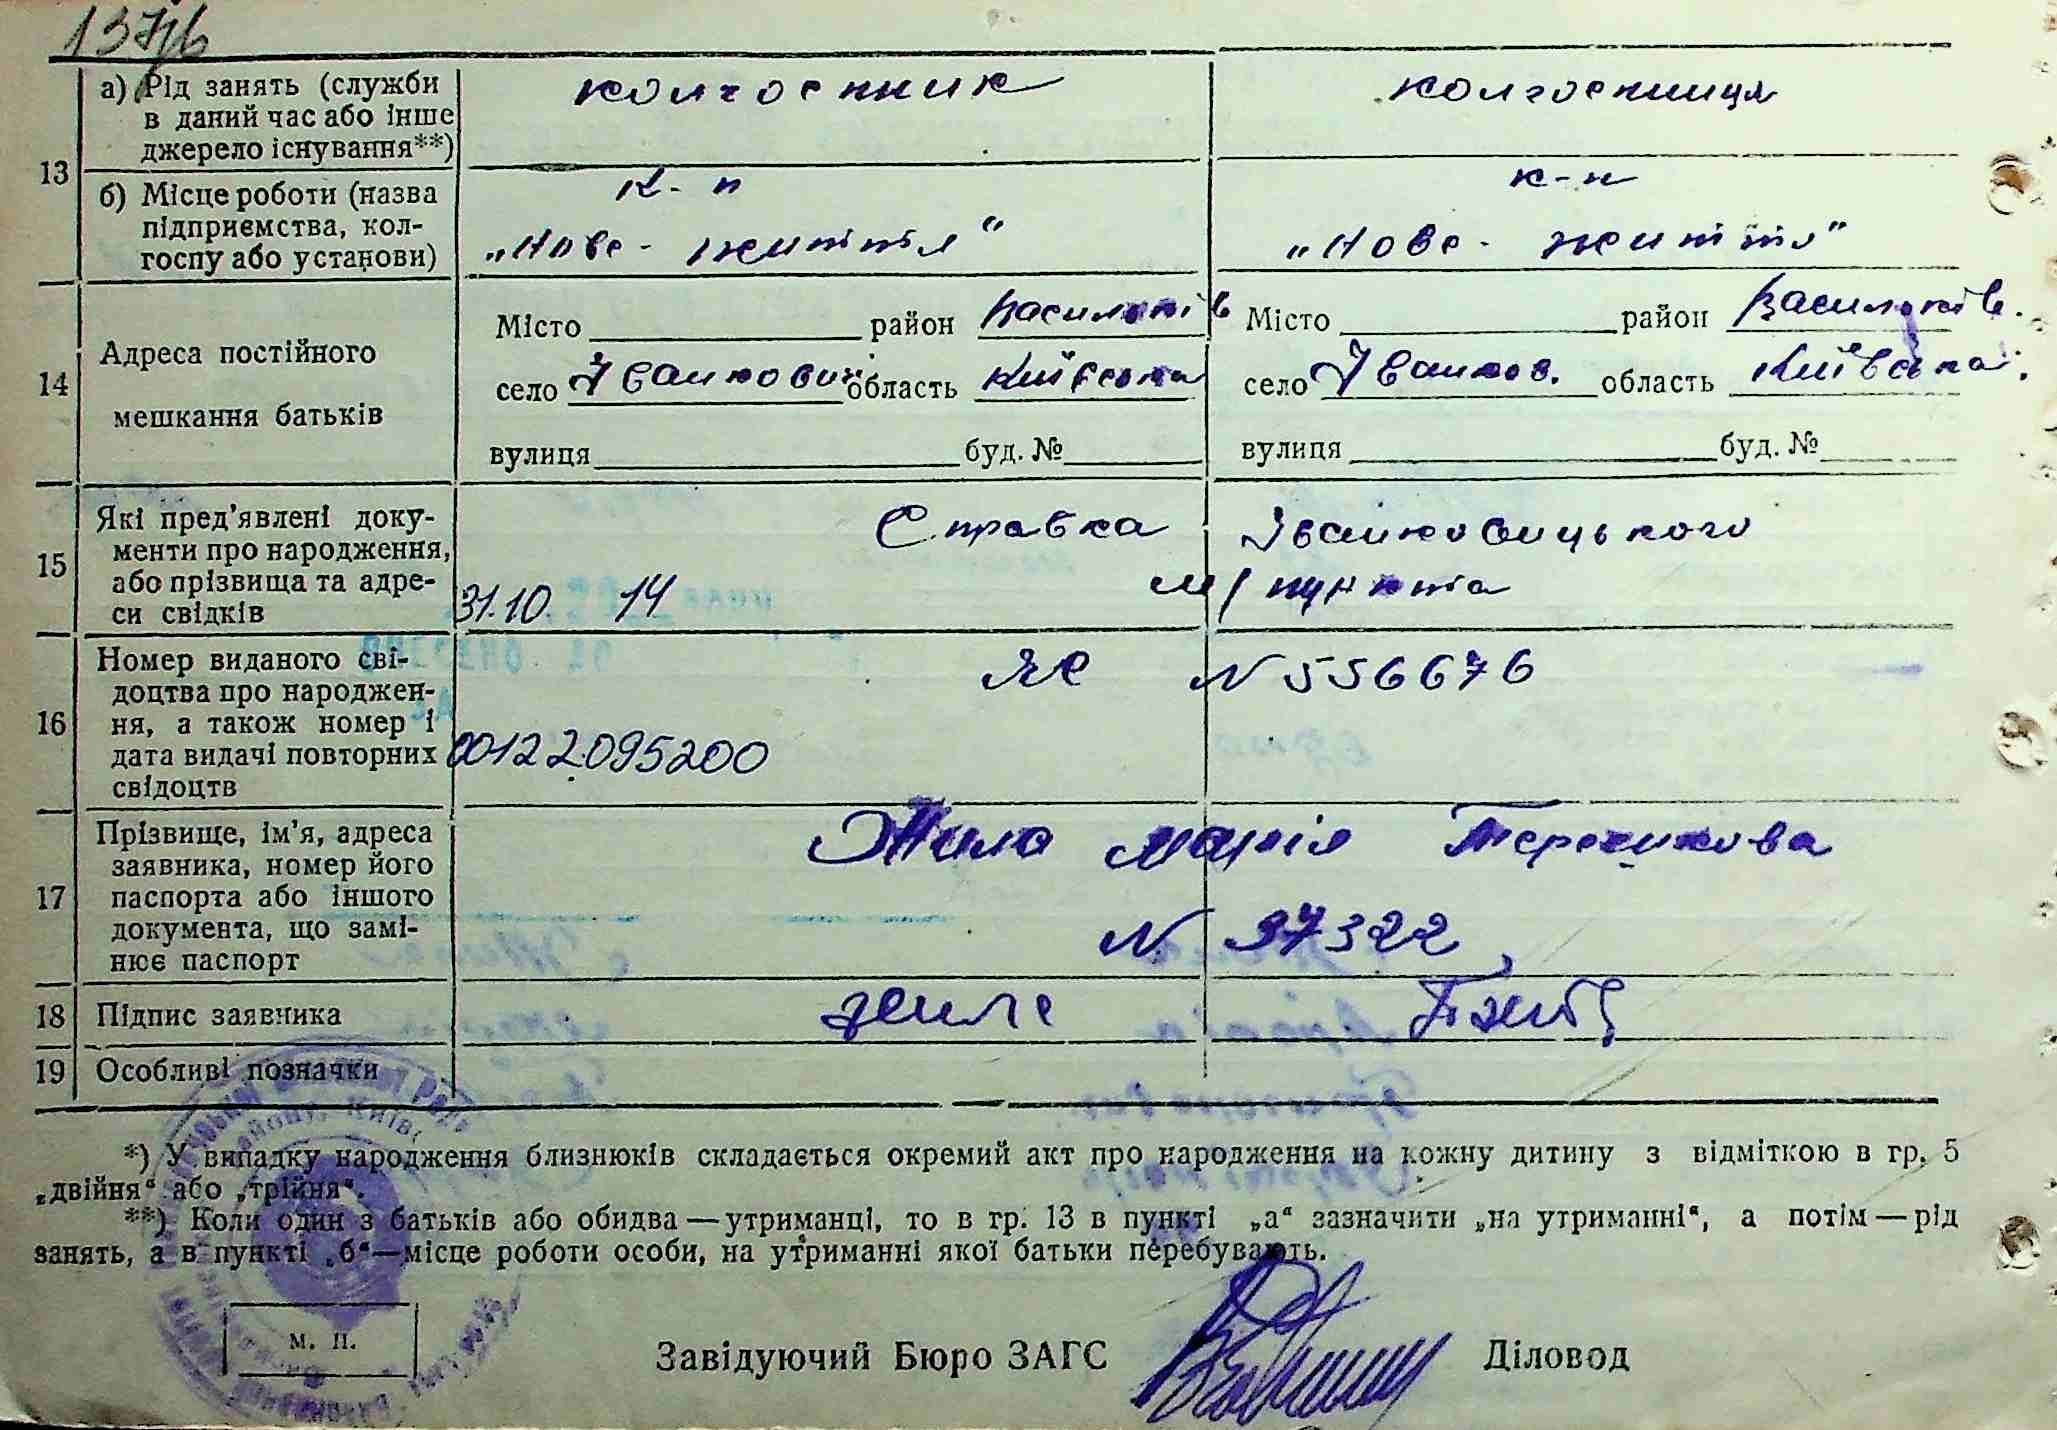 137/6
13
а) Рід занять (служби
в даний час або інше
джерело існування**)
колгоспник
колгоспниця
б) Місце роботи (назва
підприємства, кол-
госпу або установи)
к-п
„Нове - життя“
к-п
„Нове - життя“
14
Адреса постійного
мешкання батьків
Місто район Васильків
село Іванковичі область Київська
вулиця буд. №
Місто район Васильків.
село Іванков. область Київська.
вулиця буд. №
15
Які пред’явлені доку-
менти про народження,
або прізвища та адре-
си свідків
Справка Іванковицького
31.10. 14 м/пункта
16
Номер виданого сві-
доцтва про народжен-
ня, а також номер і
дата видачі повторних
свідоцтв
ЯЄ N 556676
00122095200
17
Прізвище, ім’я, адреса
заявника, номер його
паспорта або іншого
документа, що замі-
нює паспорт
Жила Марія
N 37322
18
Підпис заявника
19
Особливі позначки
*) У випадку народження близнюків складається окремий акт про народження на кожну дитину з відміткою в гр. 5
„двійня“ або „трійня“.
**) Коли один з батьків або обидва — утриманці, то в гр. 13 в пункті „а“ зазначити „на утриманні“, а потім — рід
занять, а в пункті „б“—місце роботи особи, на утриманні якої батьки перебувають.
м. п.
Завідуючий Бюро ЗАГС
Діловод